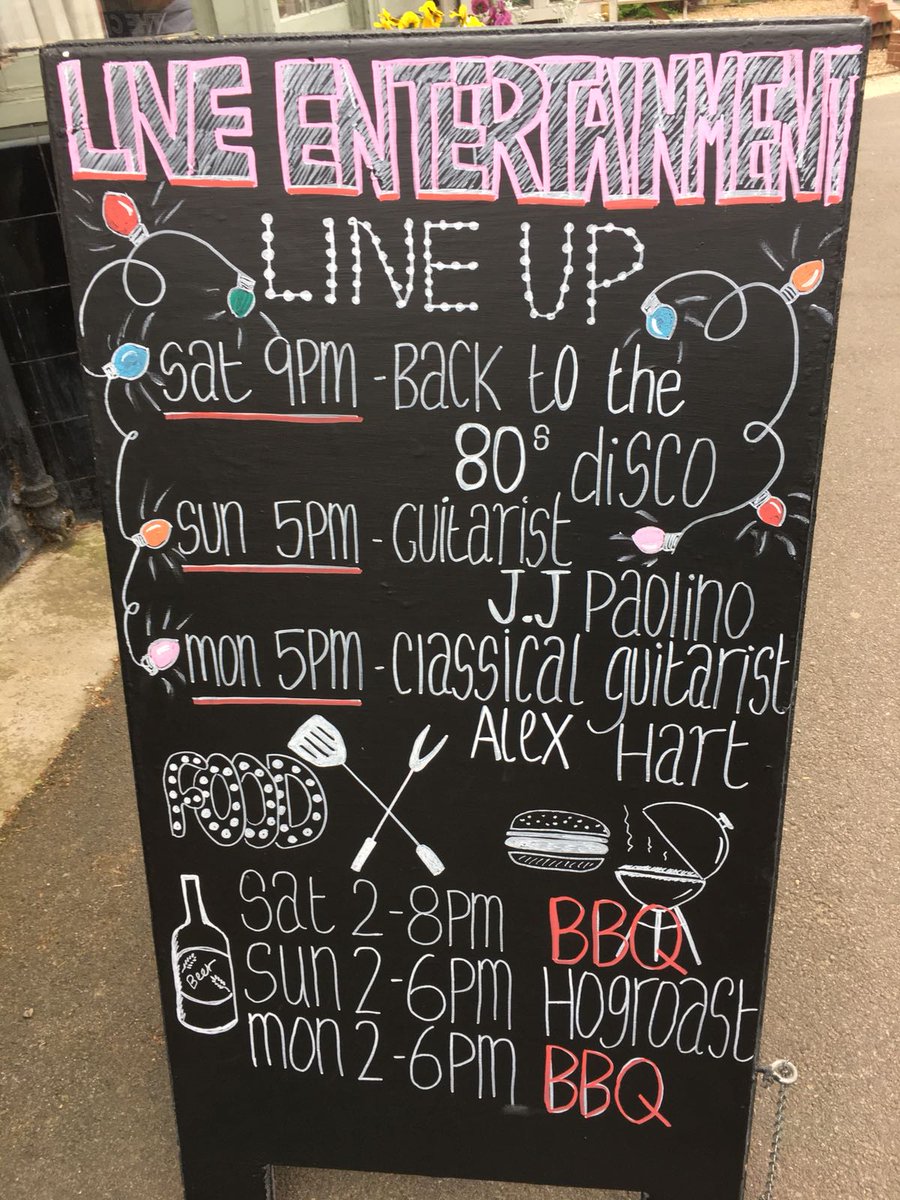 LIVE ENTERTAINMENT
LINE UP
Sat 9PM - BACK to the
80s disco
Sun 5PM - Guitarist
J.J Paolino
mon 5PM - Classical guitarist
Alex Hart
FOOD
Sat 2-8pm BBQ
Beer
Sun 2-6pm Hogroast
mon 2-6pm BBQ